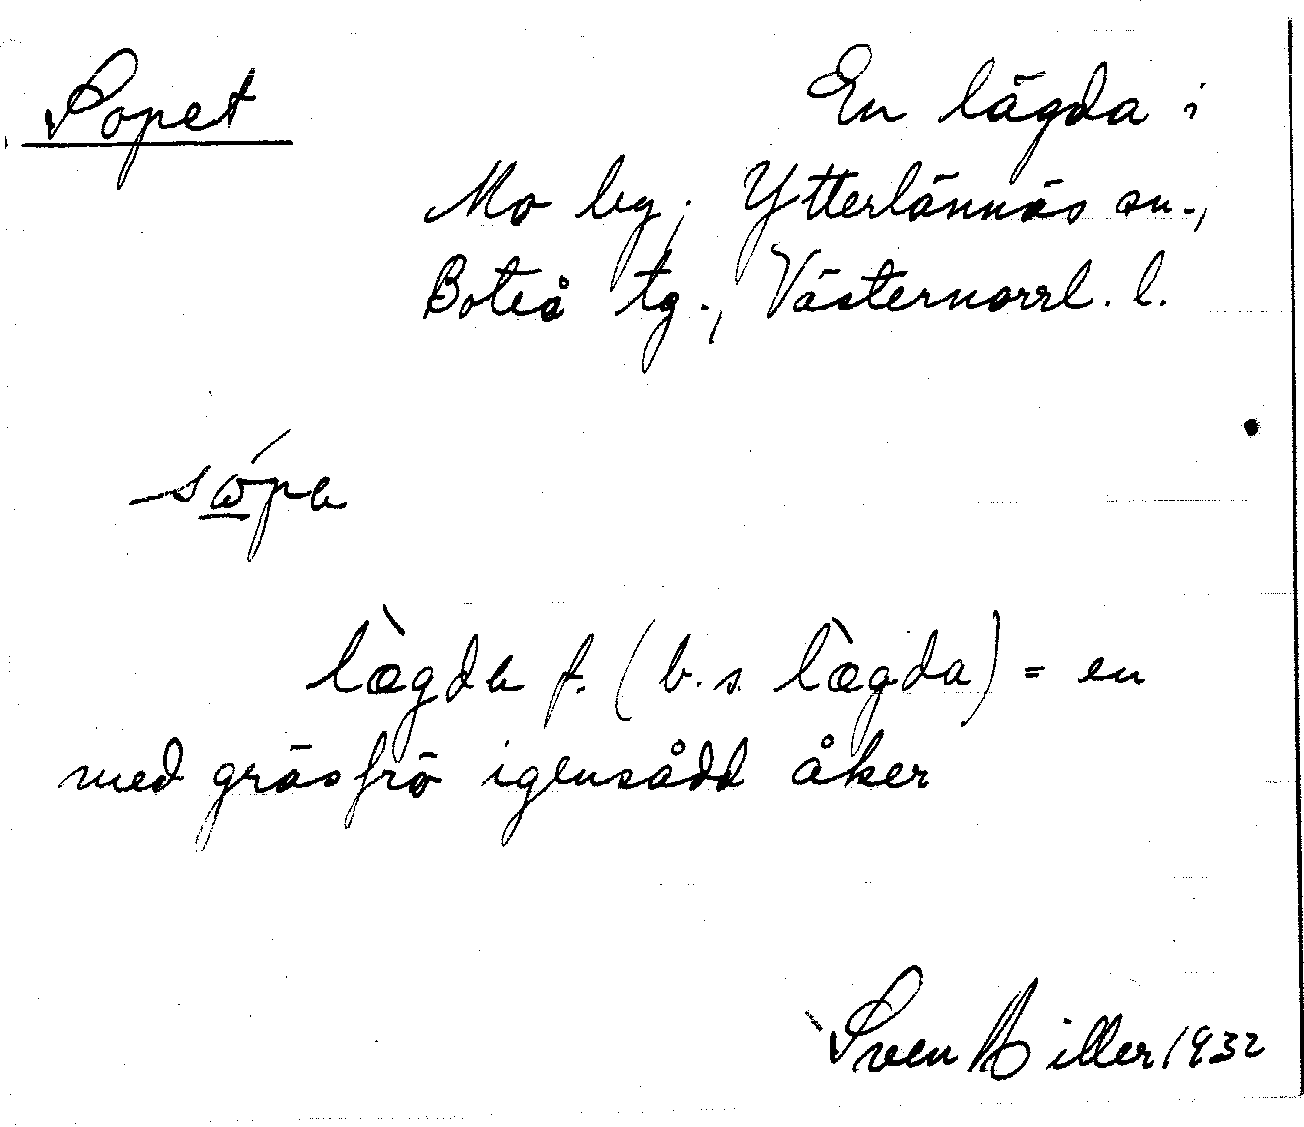 Sopet
En lägda i
Mo by, Ytterlännäs sn.,
Boteå tg., Västernorrl. l.
lægda f. (b.s. lægda) = en
med gräsfrö igensådd åker
Sven 1932